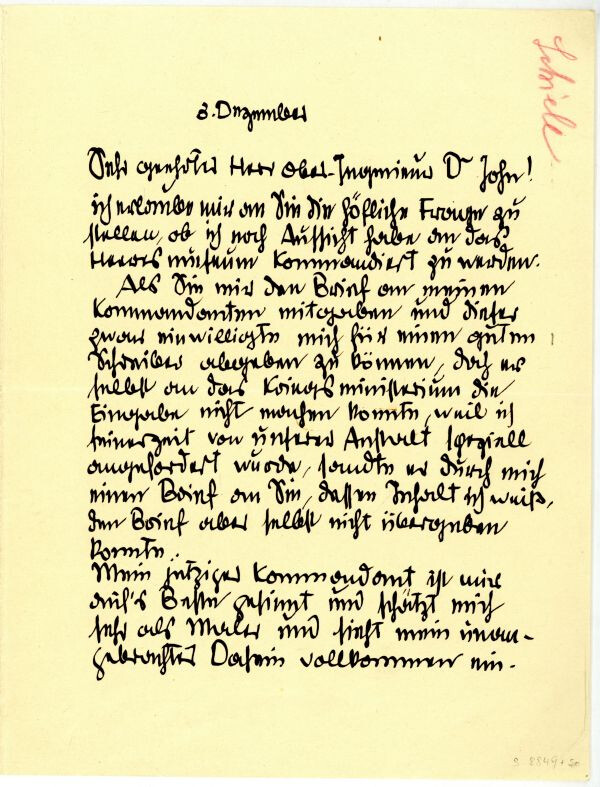 Schiele
3. Dezember
Sehr geehrter Herr Ober-Ingenieur Dr John!
ich erlaube mir an Sie die höfliche Frage zu
stellen, ob ich noch Aussicht habe an das
Heeresmuseum kommandiert zu werden.
Als Sie mir den Brief an meinen
Kommandanten mitgaben und dieser
zwar einwilligte mich für einen guten
Schreiber abgeben zu können, doch er
selbst an das Kriegsministerium die
Eingabe nicht machen konnte, weil ich
seinerzeit von unserer Anstalt speziell
angefordert wurde, sandte er durch mich
einen Brief an Sie, dessen Inhalt ich weiß,
den Brief aber selbst nicht übergeben
konnte.
Mein jetziger Kommandant ist mir
auf's Beste gesinnt und schätzt mich
sehr als Maler und sieht mein unan-
gebrachtes Dasein vollkommen ein.